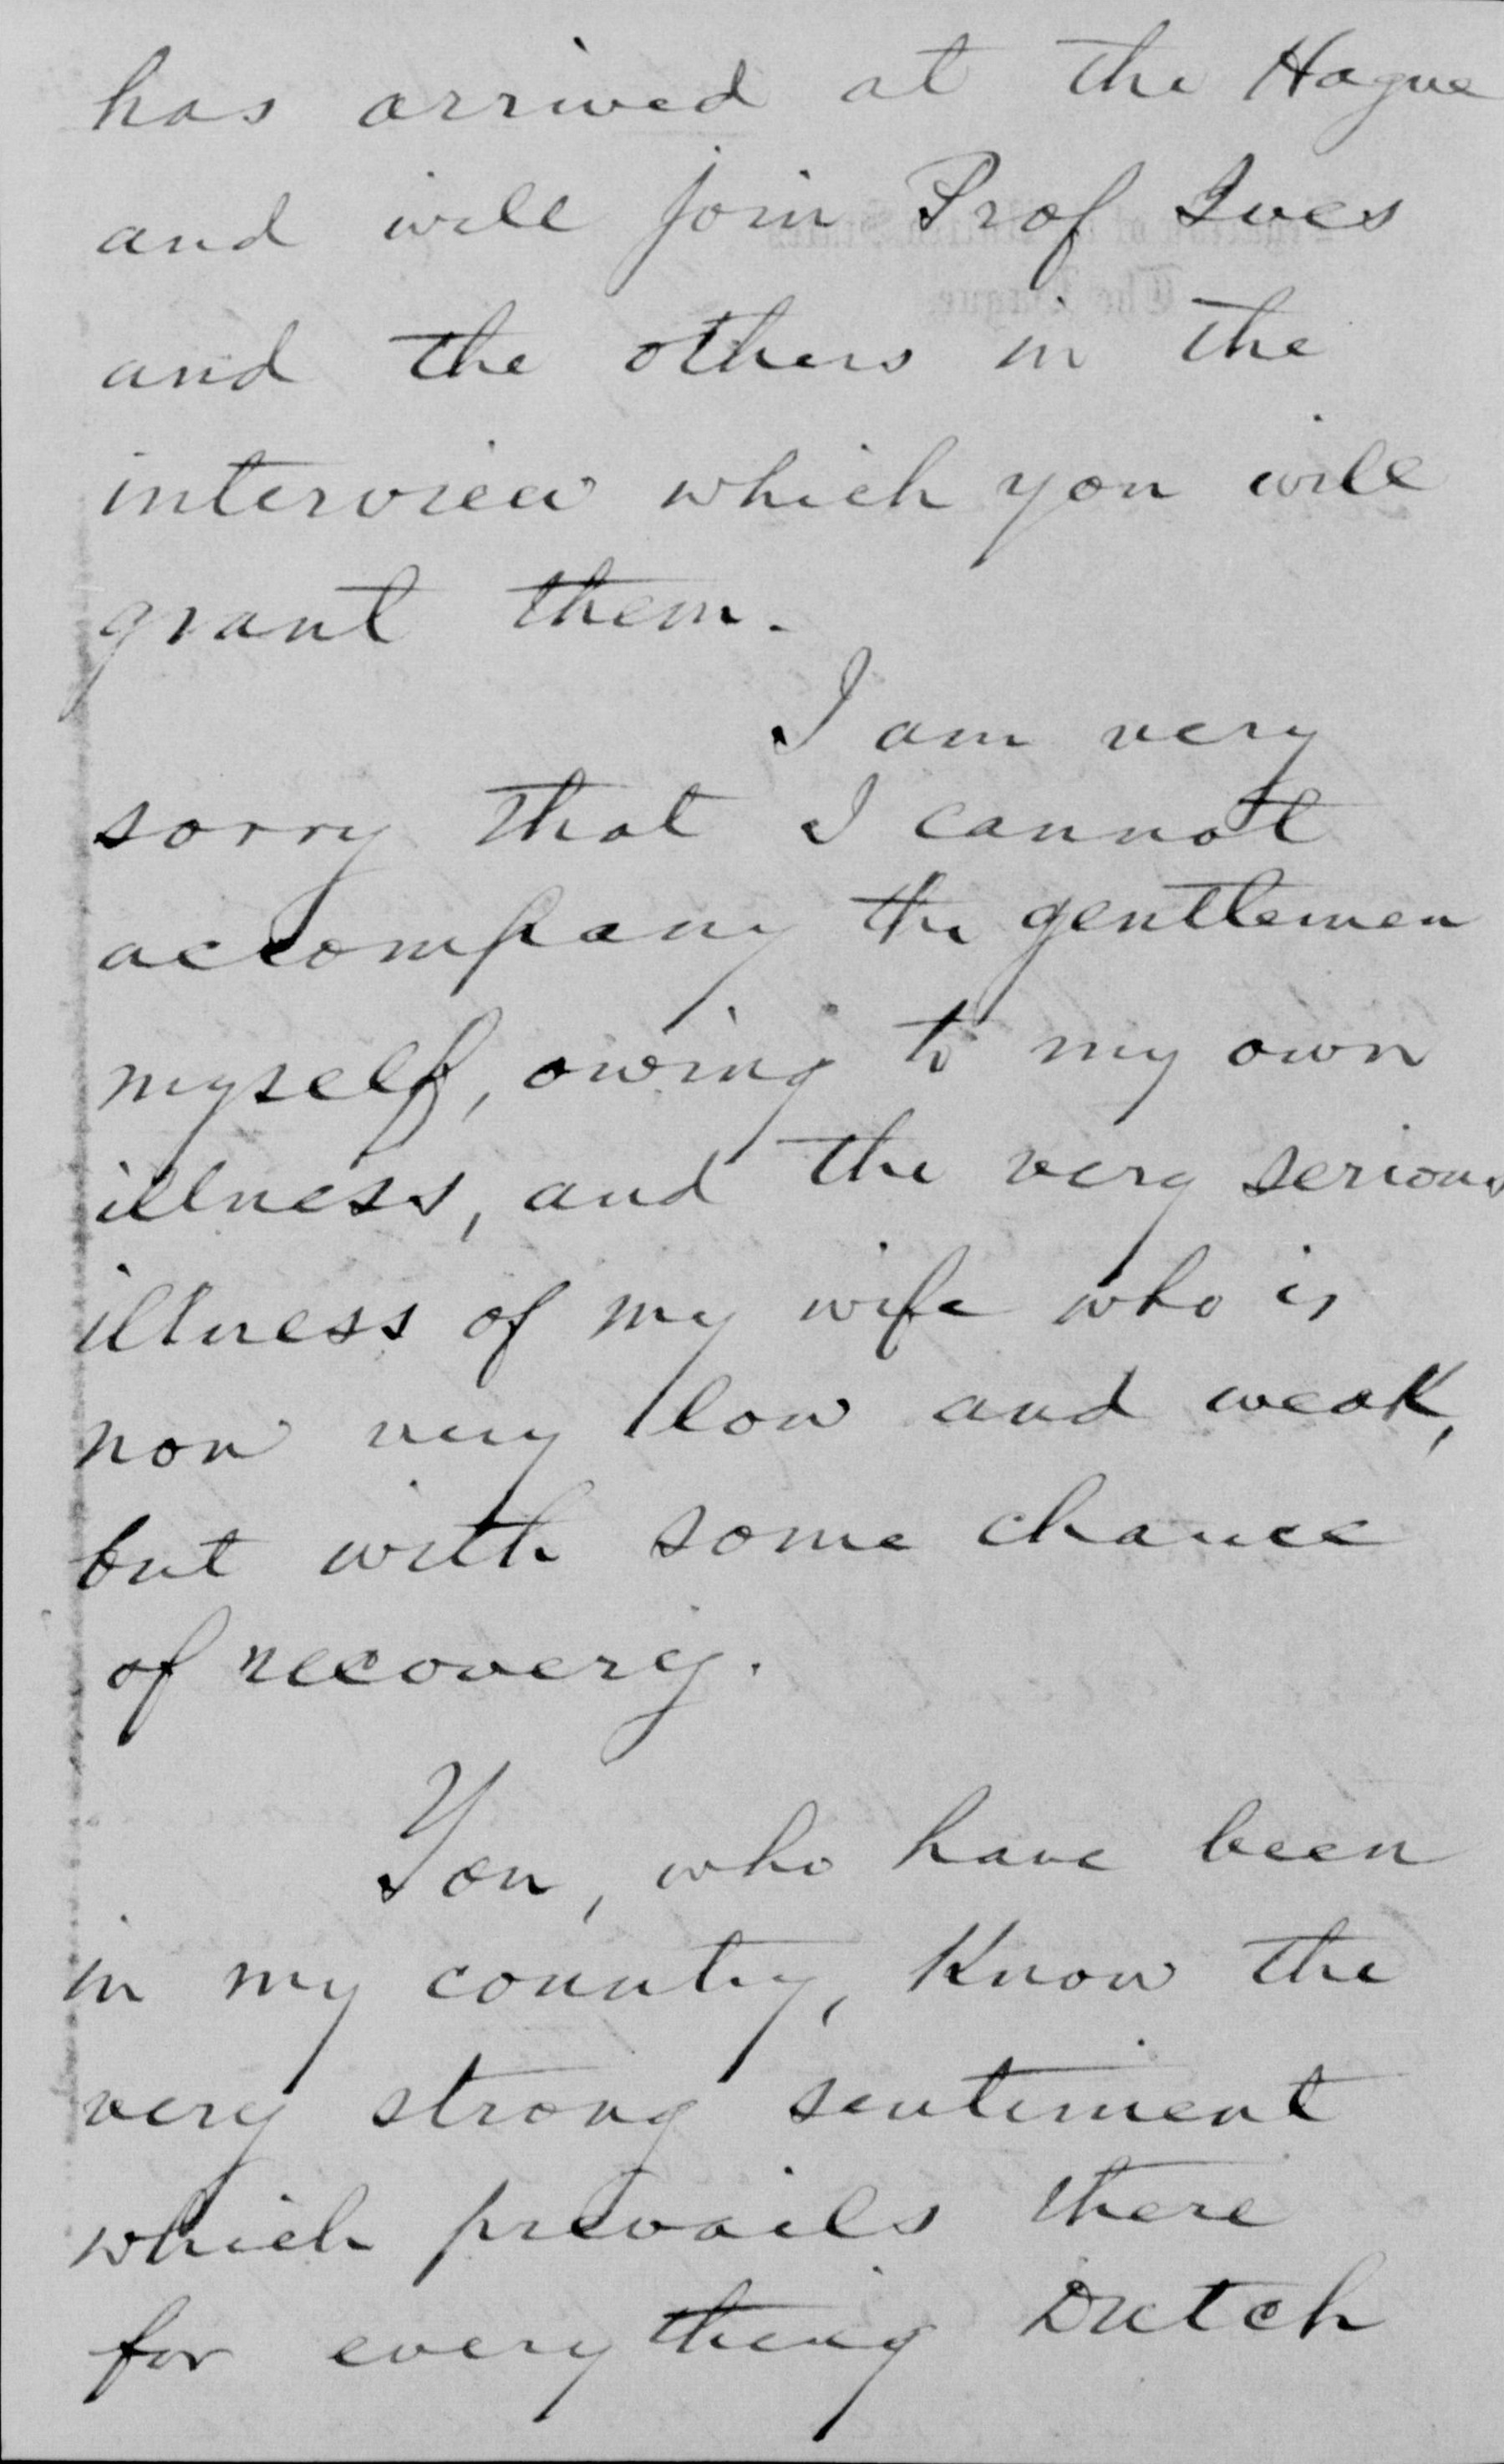 has arrived at the Hague
and will join Prof Ives
and the others in the
interview which you will
grant them.
I am very
sorry that I cannot
accompany the gentlemen
myself, owing to my own
illness, and the very serious
illness of my wife who is
now very low and weak,
but with some chance
of recovery.
You, who have been
in my country, know the
very strong sentiment
which prevails there
for everything Dutch